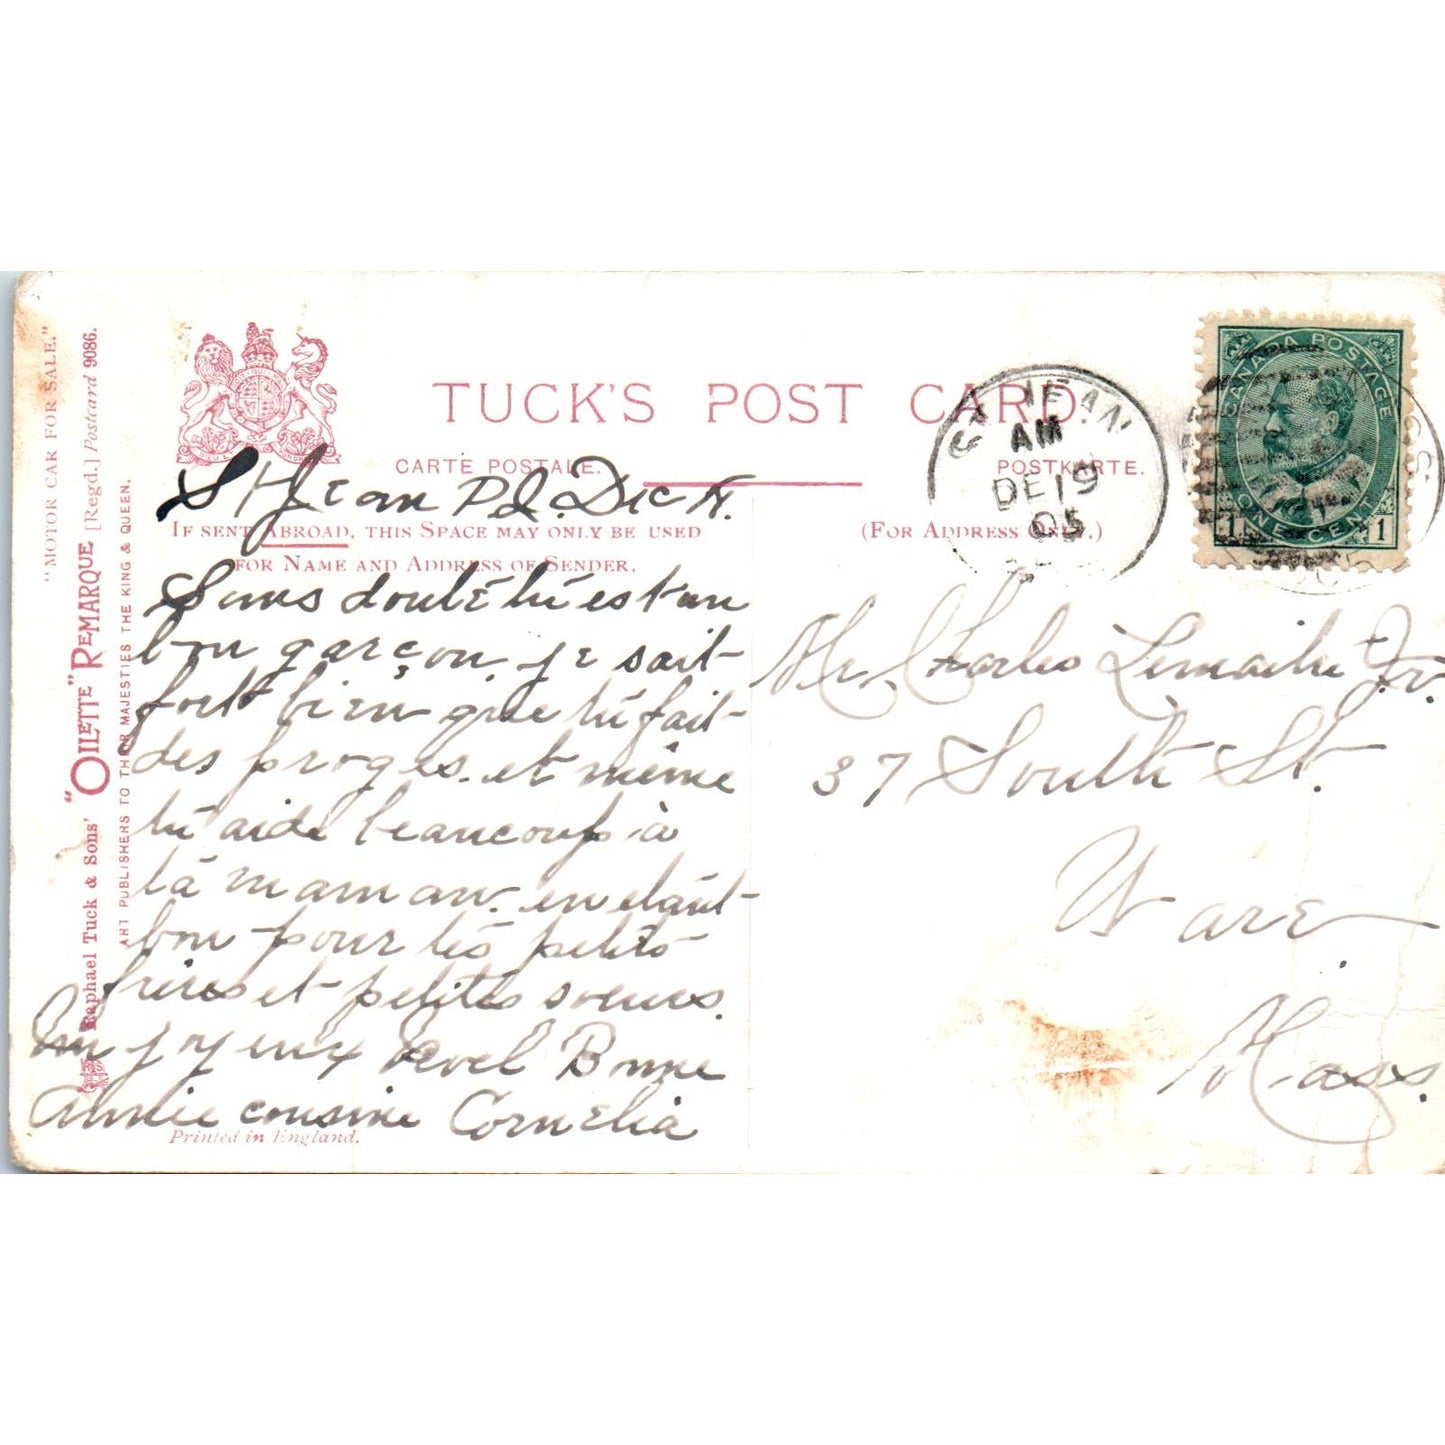 "MOTOR CAR FOR SALE."
Raphael Tuck & Sons' "OILETTE" REMARQUE [Regd.] Postcard 9086.
ART PUBLISHERS TO THEIR MAJESTIES THE KING & QUEEN.
TUCK'S POST CARD.
CARTE POSTALE.
POSTKARTE.
IF SENT ABROAD, THIS SPACE MAY ONLY BE USED
FOR NAME AND ADDRESS OF SENDER.
(FOR ADDRESS ONLY.)
ST JEAN
AM
DE 19
05
CANADA POSTAGE
1 ONE CENT 1
St Jean P.Q. Dec
Sans douté tú est un
bon garçon je sait
fort bien que tú fait
des progés et même
tú aide beaucoup à
tá maman en etáut
bon pour lés petits
fréres et petites soeurs.
Un joyeux Noel Bonne
Année cousine Cornelia
Mr. Charles Lemaire Jr.
37 South St.
Ware
Mass.
Printed in England.